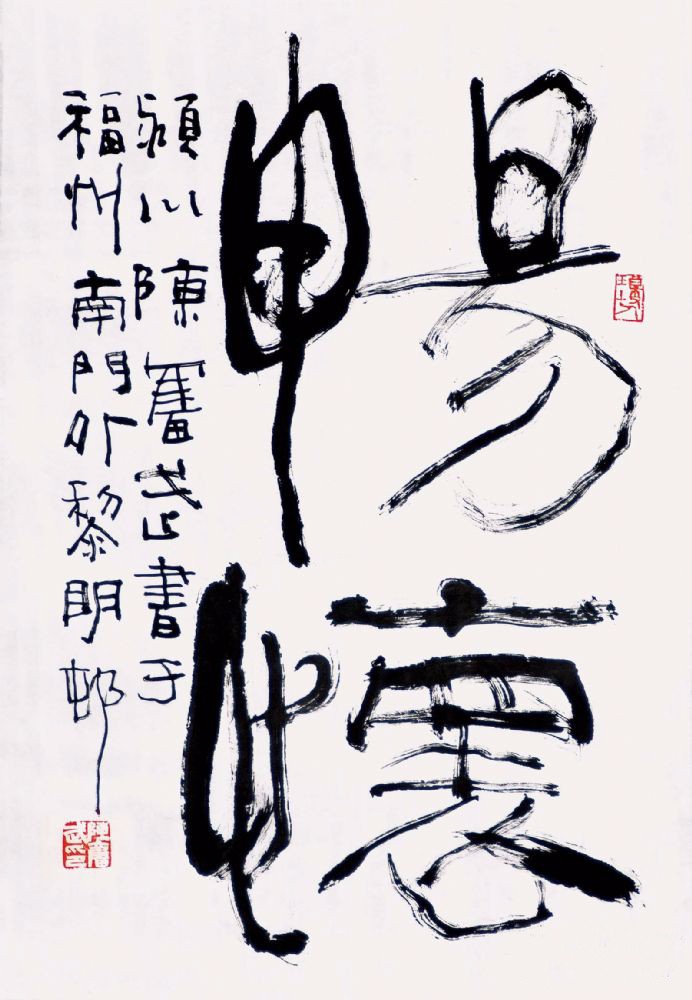 暢懷
潁川陳奮武書于
福州南門外黎明邨
陳奮武印